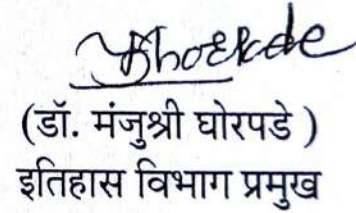 (डॉ. मंजुश्री घोरपडे )
इतिहास विभाग प्रमुख